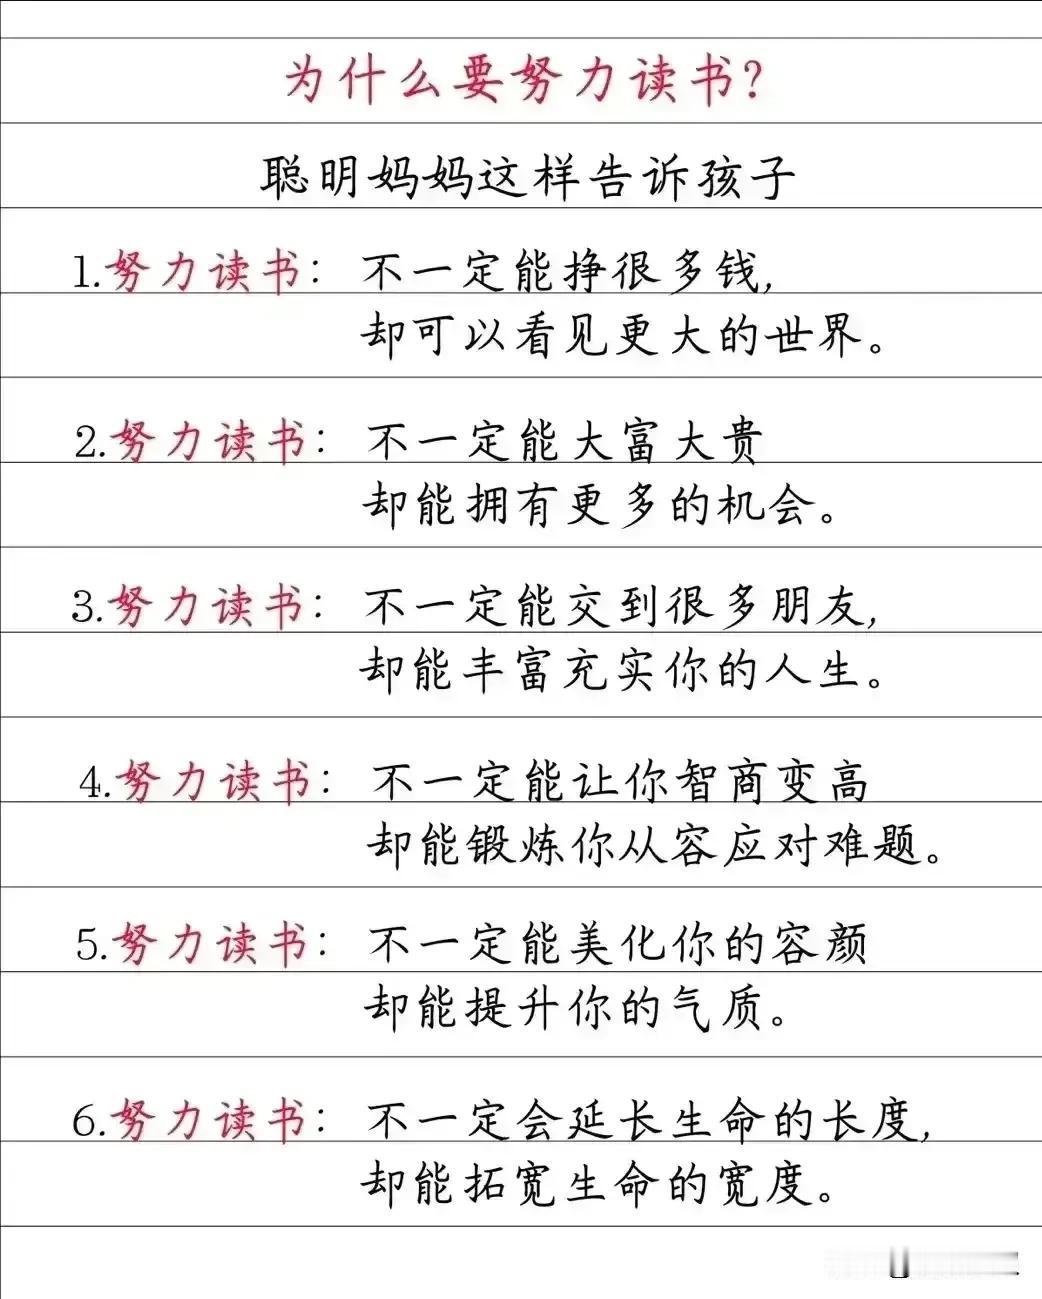 为什么要努力读书?
聪明妈妈这样告诉孩子
1.努力读书: 不一定能挣很多钱,
却可以看见更大的世界。
2.努力读书: 不一定能大富大贵
却能拥有更多的机会。
3.努力读书: 不一定能交到很多朋友,
却能丰富充实你的人生。
4.努力读书: 不一定能让你智商变高
却能锻炼你从容应对难题。
5.努力读书: 不一定能美化你的容颜
却能提升你的气质。
6.努力读书: 不一定会延长生命的长度,
却能拓宽生命的宽度。